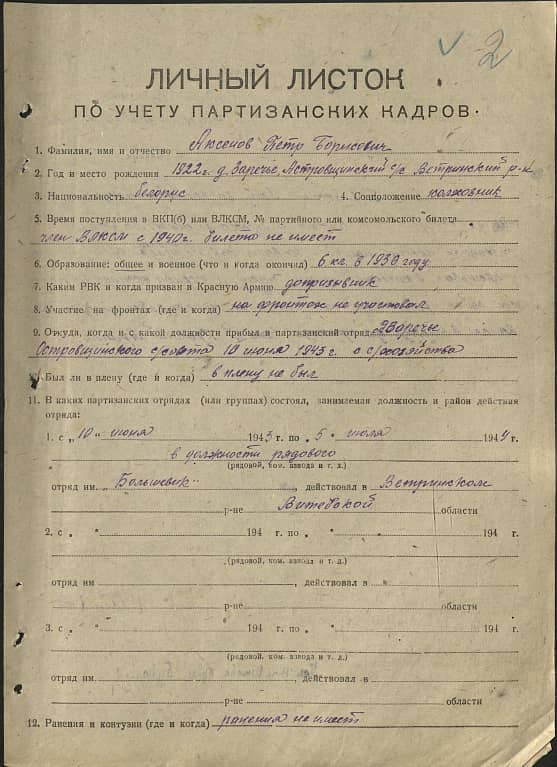 2
ЛИЧНЫЙ ЛИСТОК
ПО УЧЕТУ ПАРТИЗАНСКИХ КАДРОВ.
1. Фамилия, имя и отчество Аксенов Петр Борисович
2. Год и место рождения 1922г. д. Заречье, Астровщинский с/с Ветринский р-н
3. Национальность белорус 4. Соцположение колхозник
5. Время поступления в ВКП(б) или ВЛКСМ, № партийного или комсомольского билета
член ВЛКСМ с 1940г. билета не имеет
6. Образование: общее и военное (что и когда окончил) 6 кл. в 1938 году
7. Каким РВК и когда призван в Красную Армию допризывник
8. Участие на фронтах (где и когда) на фронтах не участвовал
9. Откуда, когда и с какой должности прибыл в партизанский отряд д Заречье
Островщинского с/совета 10 июня 1943г. с с/хозяйства
10. Был ли в плену (где и когда) в плену не был
11. В каких партизанских отрядах (или группах) состоял, занимаемая должность и район действия
отряда:
1. с „10" июня 1943 г. по „5" июля 1944 г.
в должности рядового
(рядовой, ком. взвода и т. д.)
отряд им. „Большевик", действовал в Ветринском
р-не Витебской области
2. с „ " 194 г. по „ " 194 г.
(рядовой, ком. взвода и т. д.)
отряд им , действовал в
р-не области
3. с „ " 194 г. по „ " 194 г.
(рядовой, ком. взвода и т. д.)
отряд им. , действовал в
р-не области
12. Ранения и контузии (где и когда) ранения не имеет